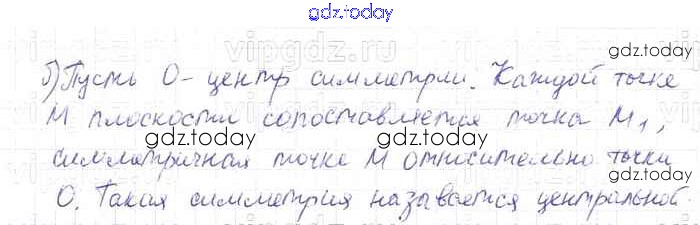 gdz.today
vipgdz.ru
gdz.today
б) Пусть O - центр симметрии. Каждой точке
gdz.today
M плоскости сопоставляется точка M₁,
gdz.today
gdz.today
симметричная точке M относительно точки
gdz.today
O. Такая симметрия называется центральной.
gdz.today